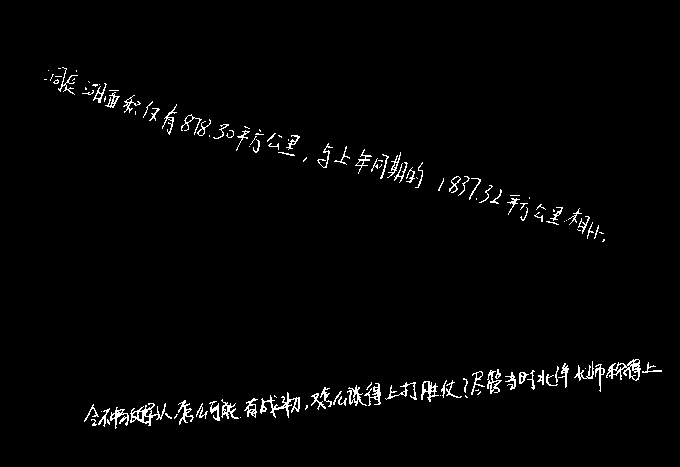 洞庭湖面积仅有878.30平方公里，与上年同期的1837.32平方公里相比，
怎么可能有战斗力，又怎么谈得上打胜仗？尽管当时北洋水师称得上